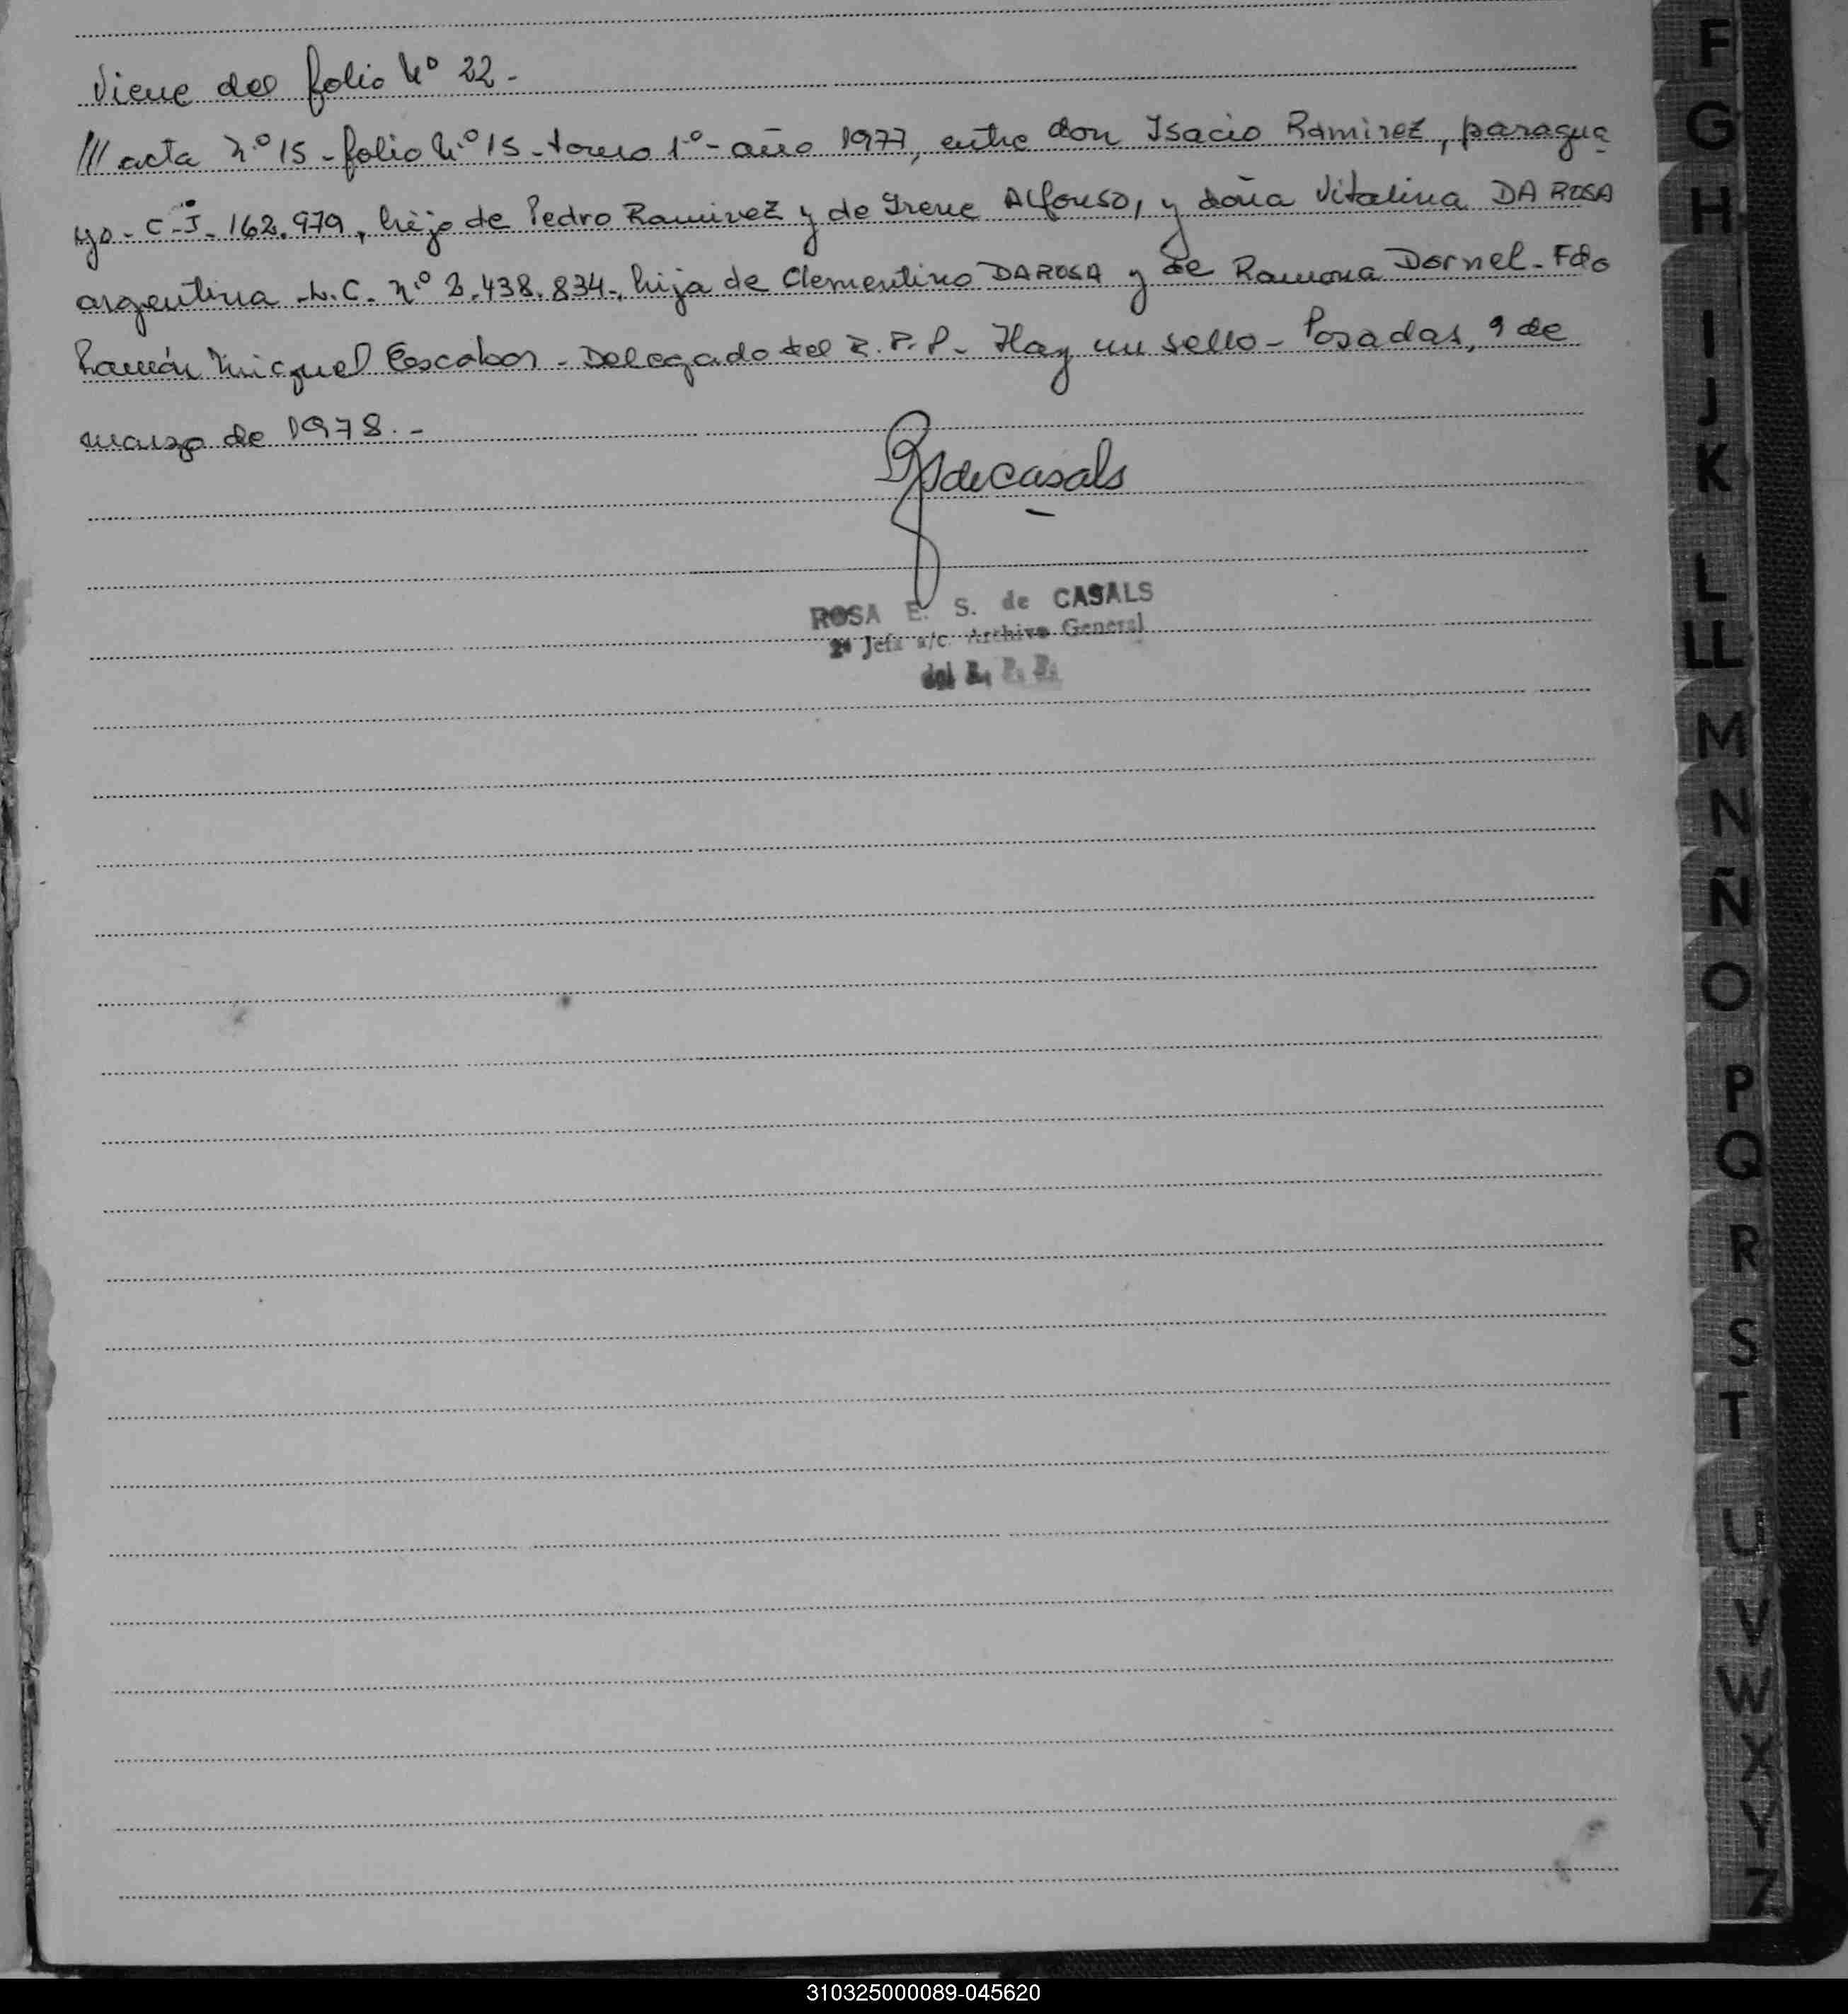 Viene del folio Nº 22.-
/// acta Nº 15 - folio Nº 15 - tomo 1º - año 1977, entre don Isacio Ramirez, paragua
yo - C.I. 162.979, hijo de Pedro Ramirez y de Irene Alfonso, y doña Vitalina DA ROSA
argentina - L.C. Nº 2.438.834-, hija de Clementino DA ROSA y de Ramona Dornel - Fdo
Ramón Miguel Escobar - Delegado del R.P.P. - Hay un sello - Posadas, 9 de
marzo de 1978.-
RSdeCasals
ROSA E. S. de CASALS
2ª Jefa a/c. Archivo General
del R. P. P.
F
G
H
I
J
K
L
LL
M
N
Ñ
O
P
Q
R
S
T
U
V
W
X
Y
Z
310325000089-045620